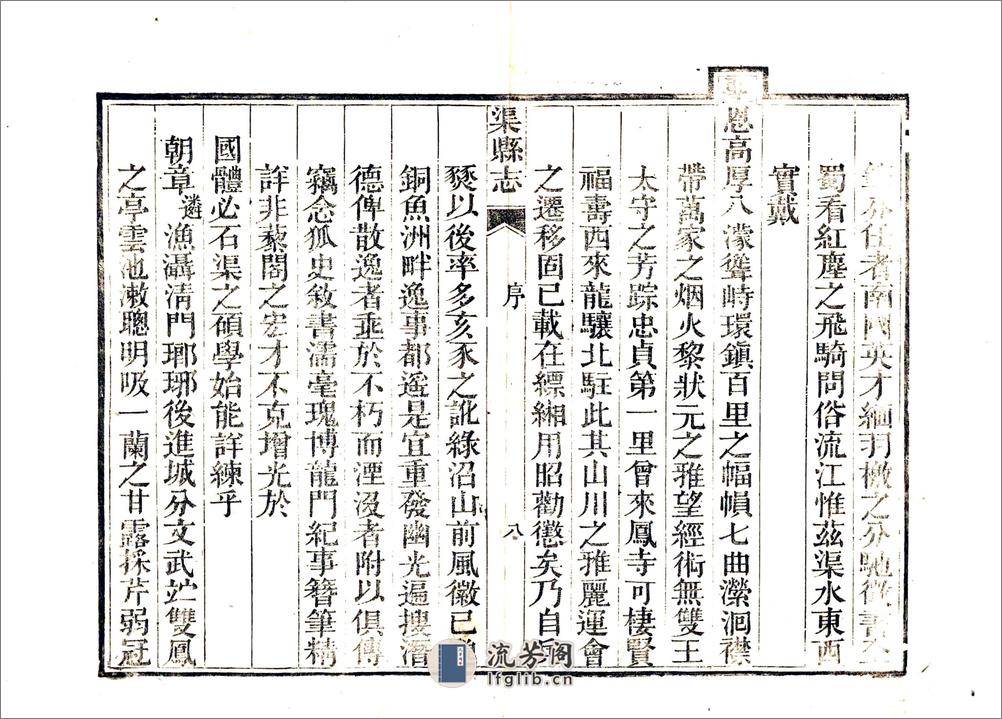 者南國英才緬羽檄之分馳
蜀看紅塵之飛騎問俗流江惟茲渠水東西
實戴
恩高厚八濛聳峙環鎮百里之幅幀七曲瀠洄襟
帶萬家之烟火黎狀元之雅望經術無雙王
太守之芳踪忠貞第一里曾來鳳寺可棲賢
福壽西來龍驤北駐此其山川之雅麗運會
之遷移固已載在縹緗用昭勸懲矣乃自
渠縣志
序
八
燹以後率多亥豕之訛綠沼山前風徽已
銅魚洲畔逸事都遙是宜重發幽光遍搜潛
德俾散逸者垂於不朽而湮沒者附以俱傳
竊念狐史敘書濡毫瑰博龍門紀事簪筆精
詳非藜閣之宏才不克增光於
國體必石渠之碩學始能詳練乎
朝章遴漁灄清門瑯琊後進城分文武竝雙鳳
之亭雲池漱聰明吸一蘭之甘露採芹弱冠
流芳阁
lfglib.cn